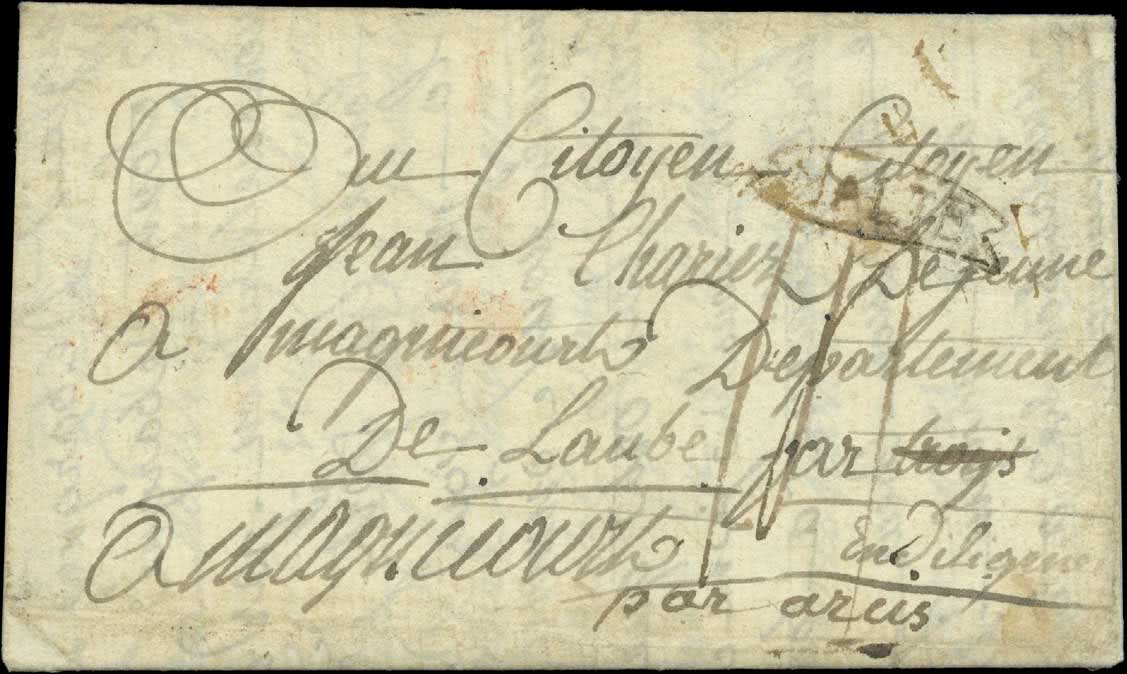 Au Citoyen Citoyen
MALTE
Jean Charius Le jeune
A magnicourts Departement
De Laube par trojs
A magnicourts En Diligence
par arcis